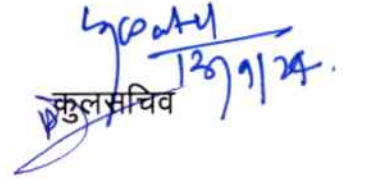 13/9/24.
कुलसचिव